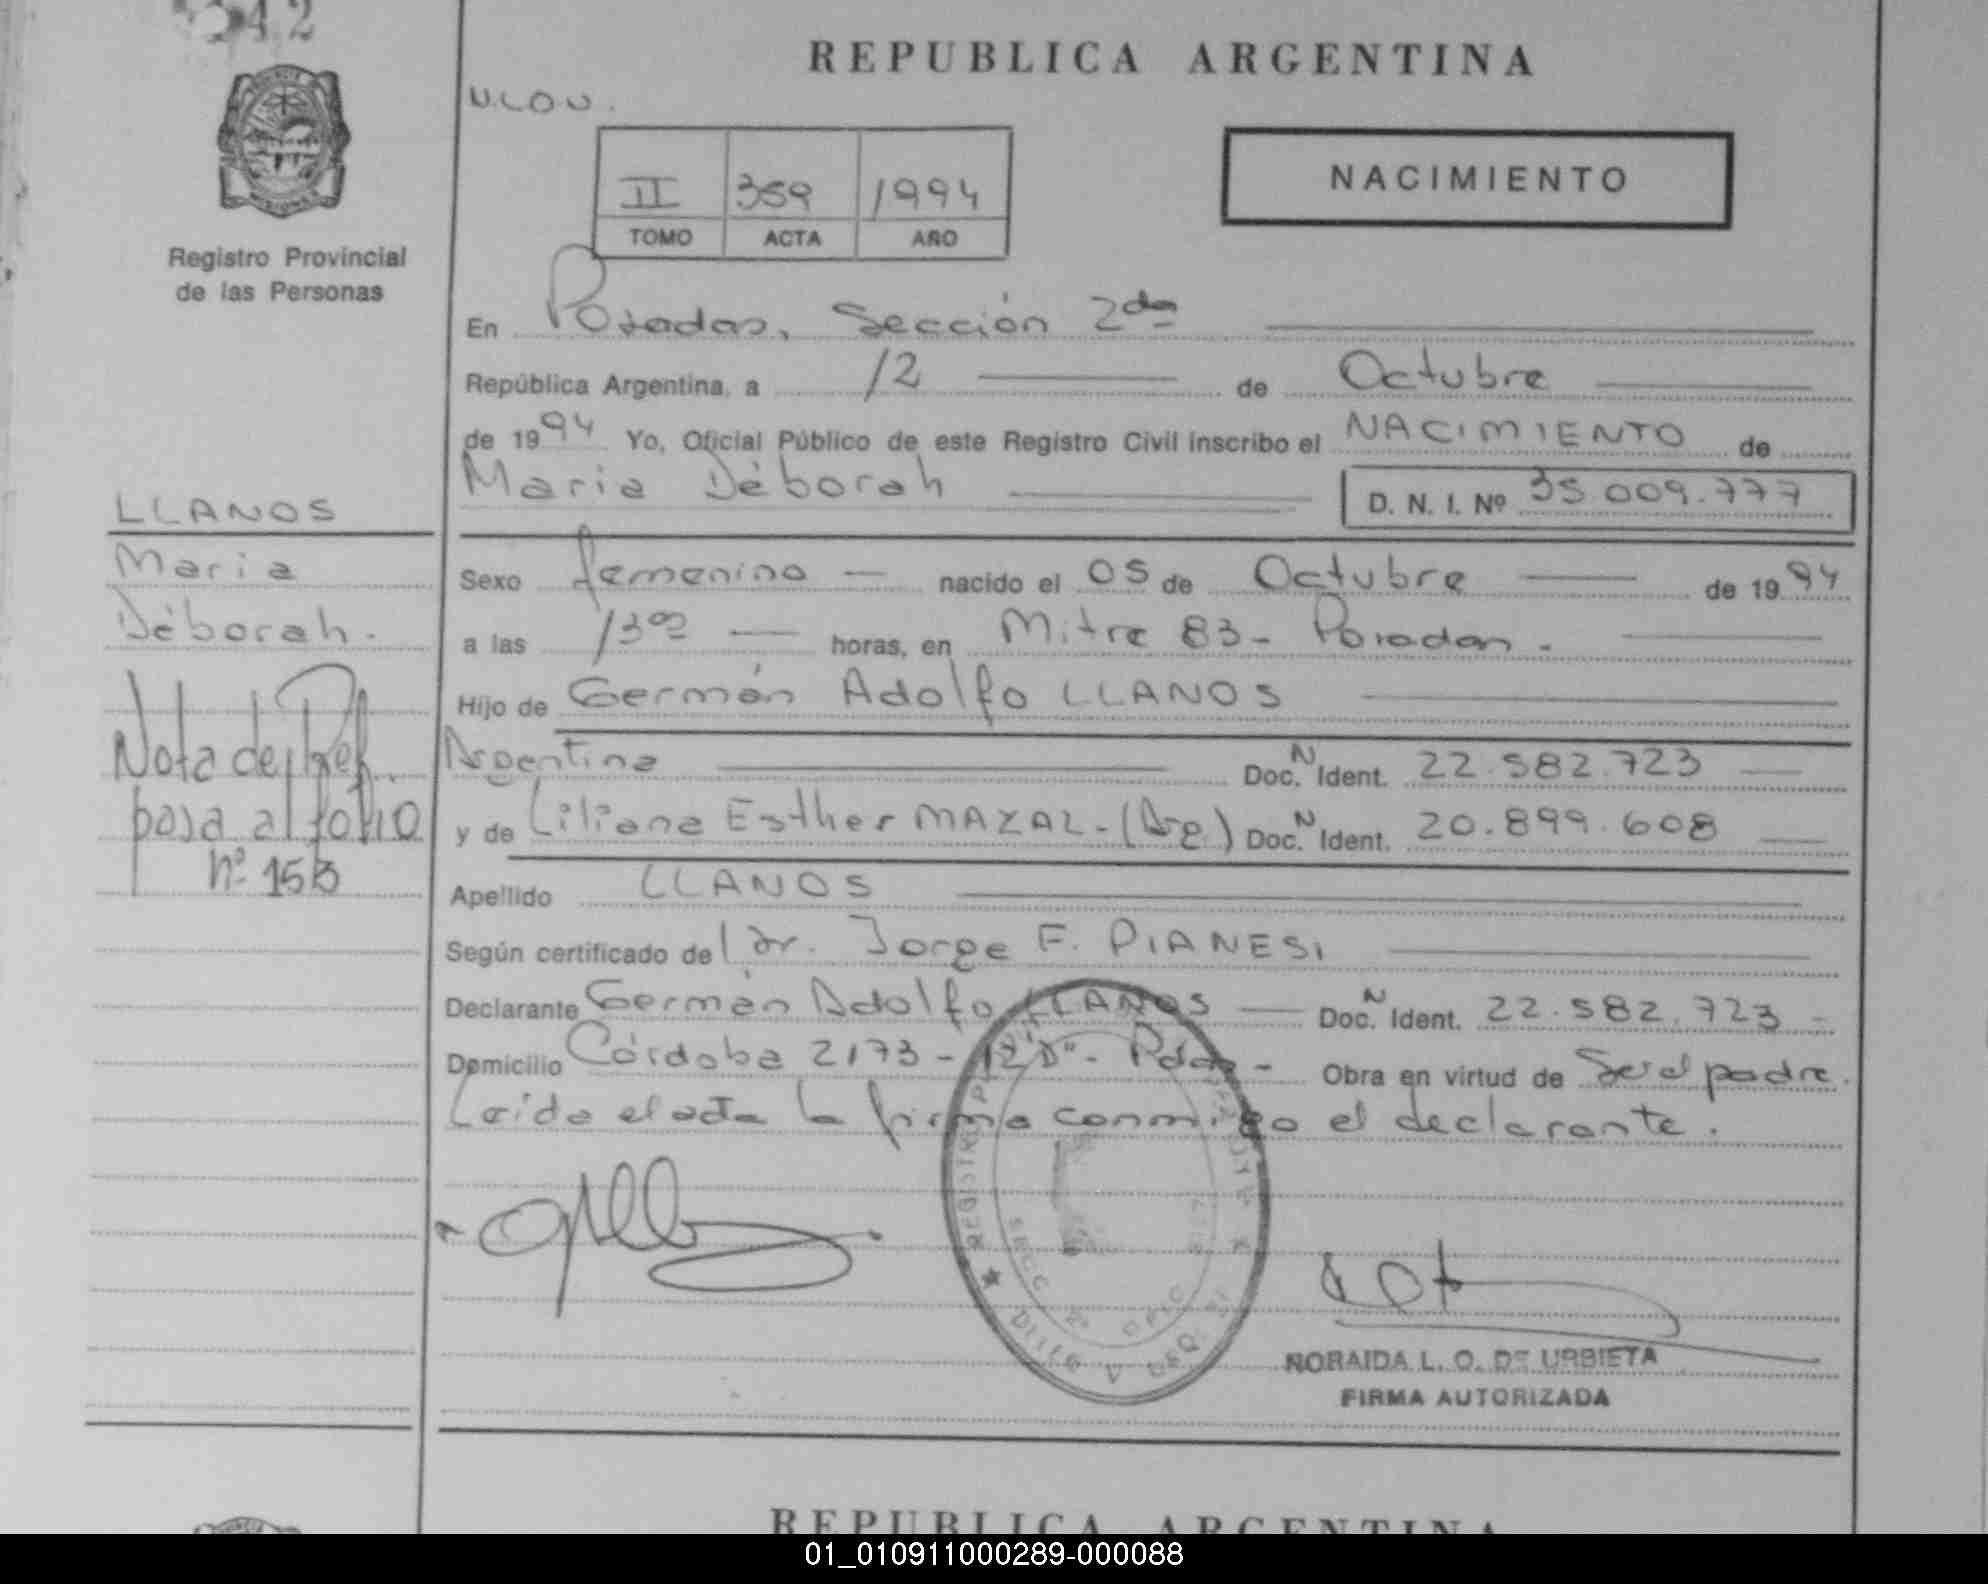 REPUBLICA ARGENTINA
II 359 1994
TOMO ACTA AÑO
NACIMIENTO
Registro Provincial
de las Personas
En Posadas, Sección 2da
República Argentina, a 12 de Octubre
de 1994 Yo, Oficial Público de este Registro Civil inscribo el NACIMIENTO de
Maria Déborah D. N. I. Nº 35.009.777
LLANOS
Maria
Déborah.
Nota de Ref.
pasa al folio
nº 153
Sexo femenino nacido el 05 de Octubre de 1994
a las 13 00 horas, en Mitre 83 - Posadas -
Hijo de Germán Adolfo LLANOS
Argentina Doc. N Ident. 22.582.723
y de Liliana Esther MAZAL - (Arg) Doc. N Ident. 20.899.608
Apellido LLANOS
Según certificado de Dr. Jorge F. PIANESI
Declarante Germán Adolfo LLANOS Doc. N Ident. 22.582.723 -
Domicilio Córdoba 2173 - 12 "D" - Pdas - Obra en virtud de Ser el padre.
Leida el acta la firma conmigo el declarante.
NORAIDA L. O. DE URBIETA
FIRMA AUTORIZADA
REPUBLICA ARGENTINA
01_010911000289-000088